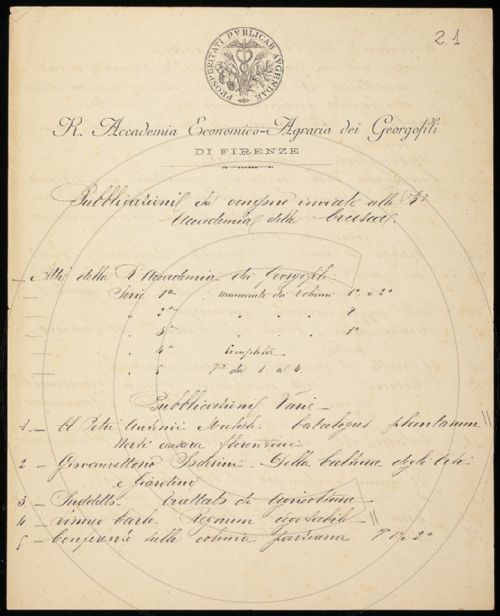 21
PROSPERITATI PVBLICAE AVGENDAE
R. Accademia Economico-Agraria dei Georgofili
DI FIRENZE
Pubblicazioni che vengono inviate alla R.
Accademia della Crusca.
Atti della R. Accademia dei Georgofili
Serie 1a mancante dei volumi 1° e 2°
" 2a " " "
" 3a " " " 1°
" 4a completa
" 5 da 1. a 4.
Pubblicazioni Varie
1 - Petri Antonii Catalogus plantarum
Horti florentini
2 - Giovanvettorio Soderini - Della Cultura degli Orti
e Giardini
3 - Suddetto - Trattato di Agricoltura
4 - Linneo Carlo - Regnum vegetabile
5 - Conferenze sulla colonia parziaria 1° e 2°